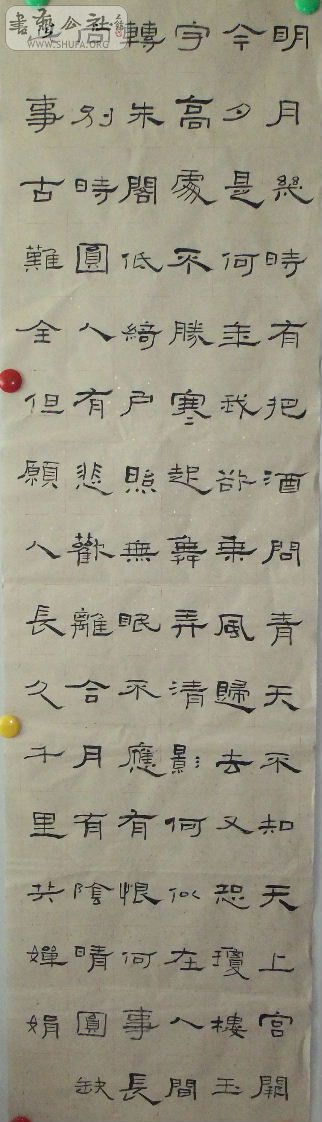 明月幾時有把酒問青天不知天上宮闕
今夕是何年我欲乘風歸去又恐瓊樓玉
宇高處不勝寒起舞弄清影何似在人間
轉朱閣低綺戶照無眠不應有恨何事長
別時圓人有悲歡離合月有陰晴圓缺
事古難全但願人長久千里共嬋娟
公社
WWW.SHUFA.ORG